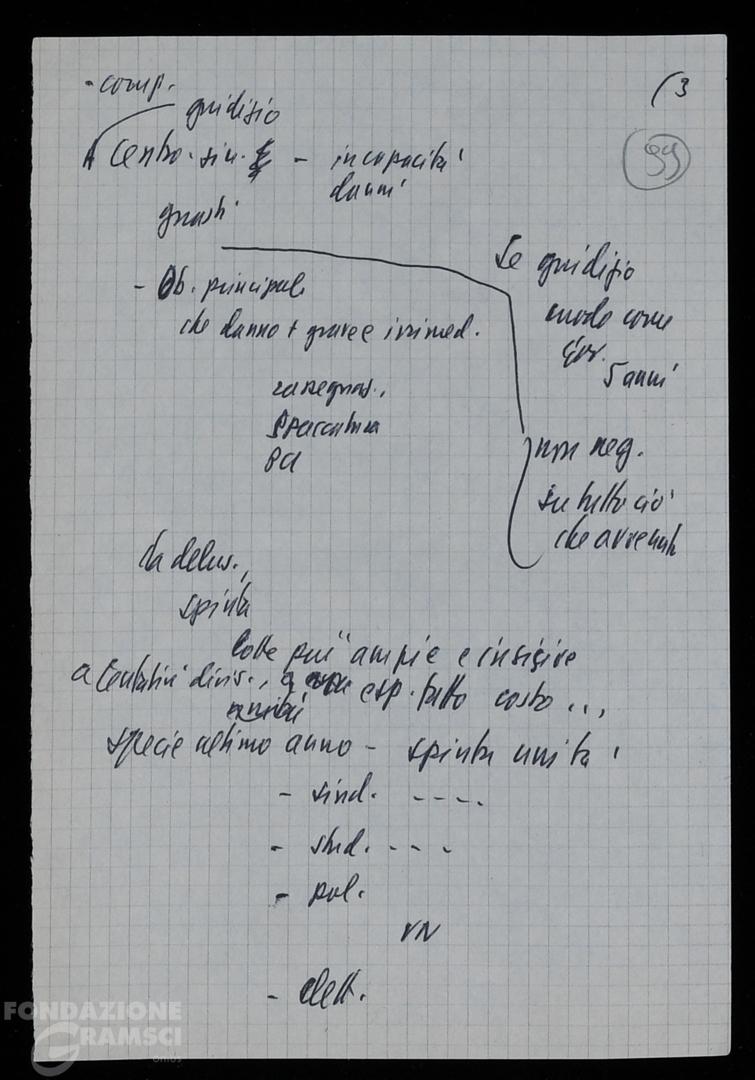 (3
99
- comp.
giudizio
Centro-sin. - incapacità
danni
guasti
Se giudizio
modo come
gov.
5 anni
- Ob. principale
che danno + grave e irrimed.
rassegnaz.,
spaccatura
PCI
non neg.
su tutto ciò
che avvenuto
la delus.,
spinta
lotte più ampie e incisive
a tentativi divis., a esp. tutto costo ...,
unità
specie ultimo anno - spinta unità
- sind. ----
- stud. ---
- pol.
VN
- elett.
FONDAZIONE
GRAMSCI
onlus